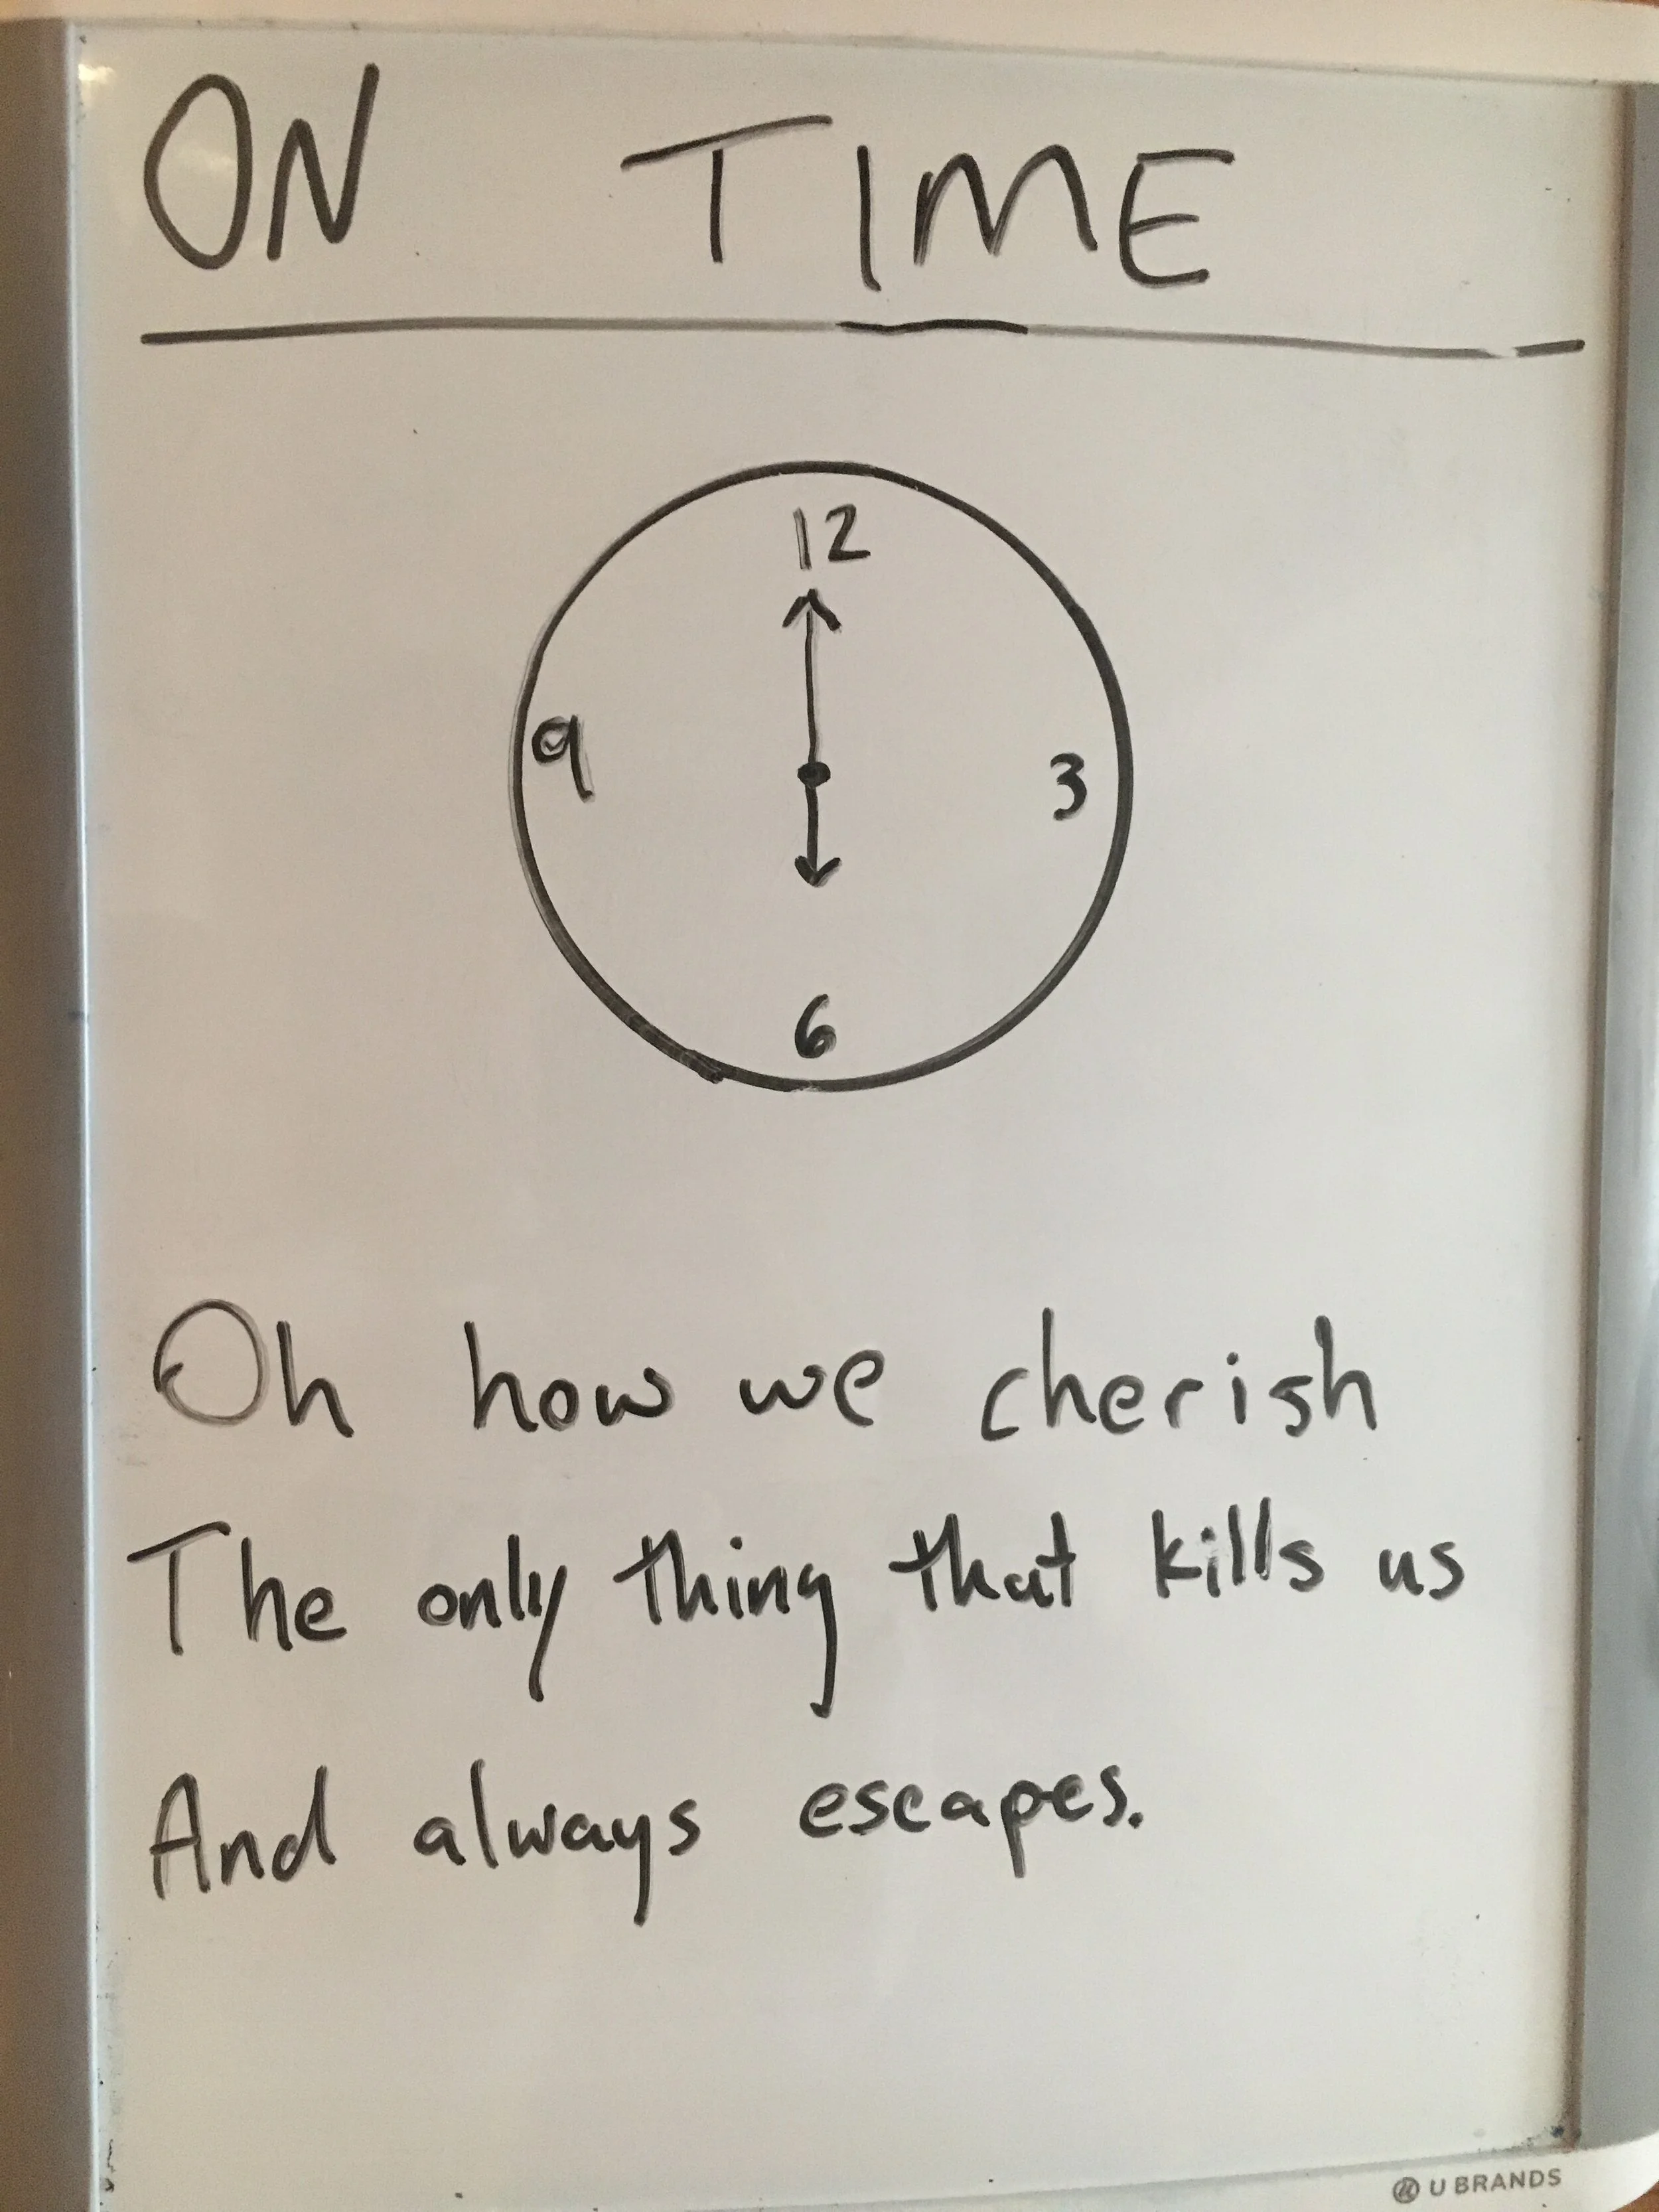 ON TIME
12
9
3
6
Oh how we cherish
The only thing that kills us
And always escapes.
U BRANDS